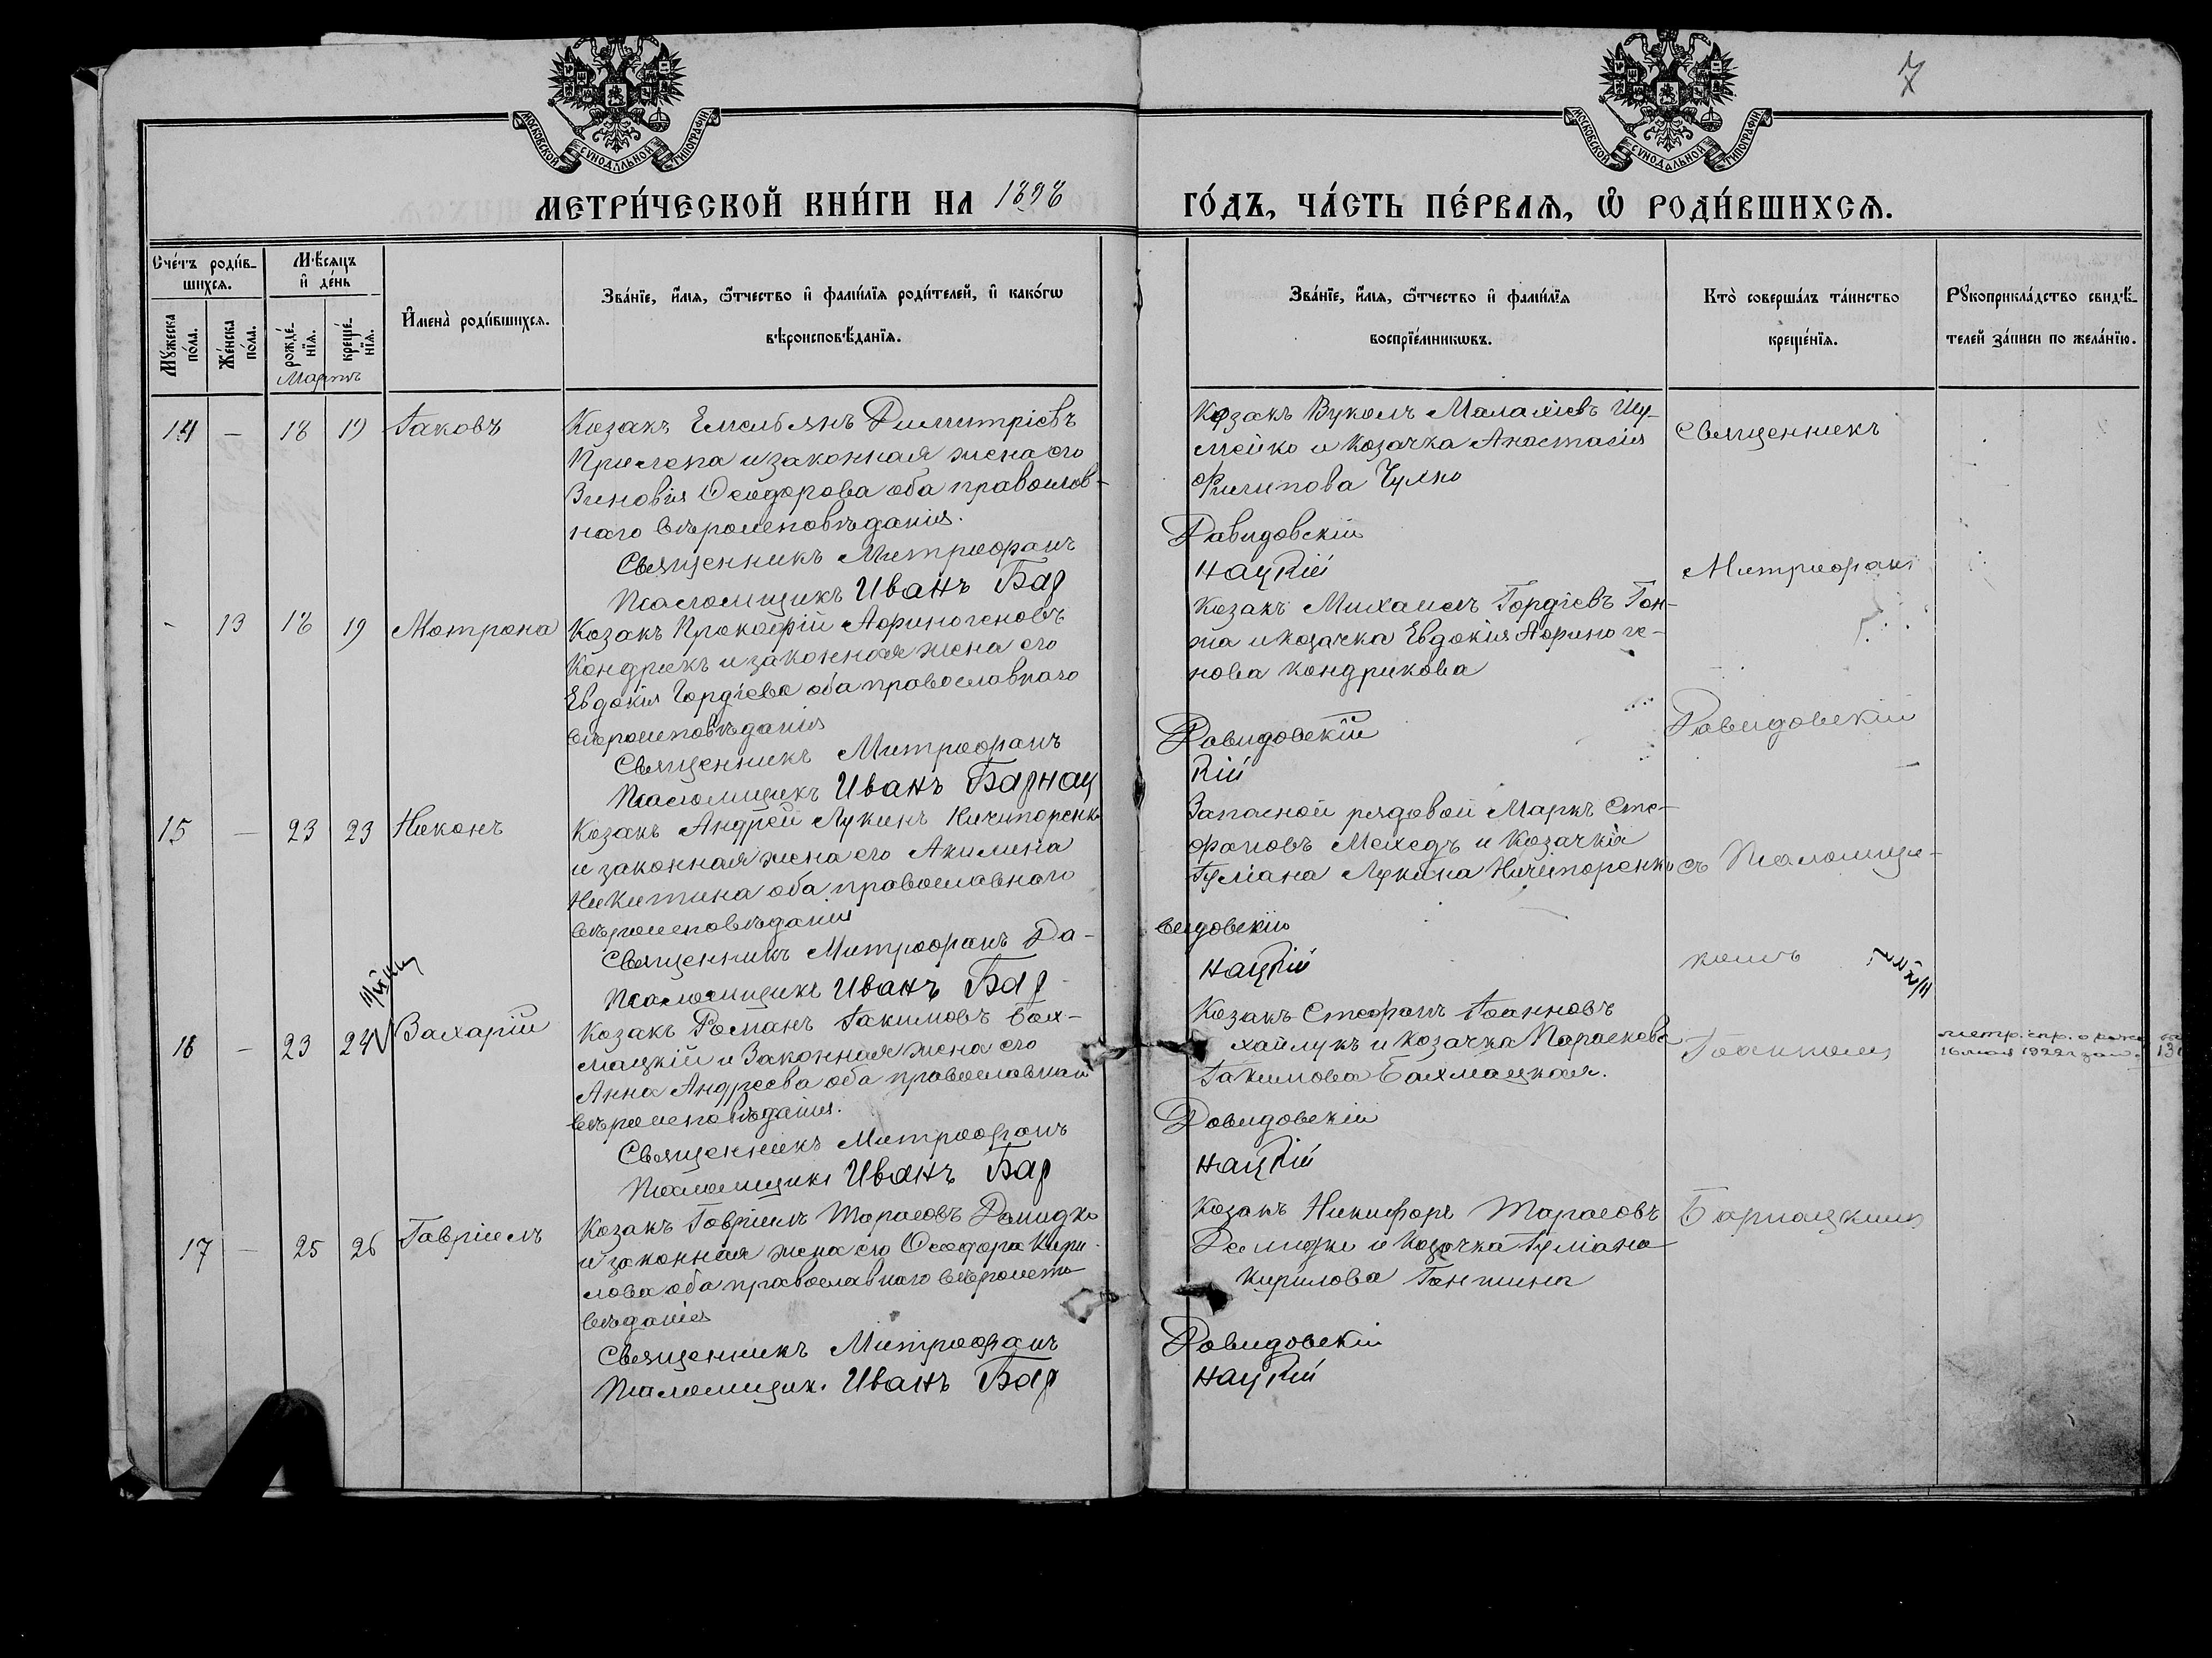 МОСКОВСКОЙ СѴНОДАЛЬНОЙ ТИПОГРАФІИ
МОСКОВСКОЙ СѴНОДАЛЬНОЙ ТИПОГРАФІИ
7
МЕТРИ́ЧЕСКОЙ КНИ́ГИ НА 1898 ГО́ДЪ, ЧА́СТЬ ПЕ́РВАѦ, Ѡ҆ РОДИ́ВШИХСѦ.
Сче́тъ роди́в-
шихсѧ.
Мꙋ́жеска по́ла.
Же́нска по́ла.
Мѣ́сяцъ
и҆ де́нь
рожде́-
нїѧ.
креще́-
нїѧ.
Мартъ
И҆мена̀ роди́вшихсѧ.
Зва́нїе, и҆́мѧ, ѻ҆́тчество и҆ фами́лїѧ роди́телей, и҆ како́гѡ
вѣроисповѣ́данїѧ.
Зва́нїе, и҆́мѧ, ѻ҆́тчество и҆ фами́лїѧ
воспрїе́мникѡвъ.
Кто̀ соверша́лъ та́инство
креще́нїѧ.
Рꙋкоприкла́дство свидѣ́-
телей за́писи по жела́нїю.
14 — 18 19 Іаковъ
Козакъ Емельянъ Димитріевъ
Прилепа и законная жена его
Зиновія Ѳеодорова оба православ-
наго вѣроисповѣданія.
Священникъ Митрофанъ
Псаломщикъ Иванъ Бар
Козакъ Вуколъ Малахіевъ Шу-
мейко и Козачка Анастасія
Филипова
Давидовскій
нацкій
Священникъ
Митрофанъ
- 13 18 19 Мотрона
Козакъ Прокофій Афиногеновъ
Кондрикъ и законная жена его
Евдокія Гордіева оба православнаго
вѣроисповѣданія
Священникъ Митрофанъ
Псаломщикъ Иванъ Барнац
Козакъ Михаилъ Гордіевъ Гон-
жа и козачка Евдокія Афиноге-
нова Кондрикова
Давидовскій
кій
Давидовскій
15 — 23 23 Никонъ
Козакъ Андрей Лукинъ Ничипоренко
и законная жена его Акилина
Никитина оба православнаго
вѣроисповѣданія
Священникъ Митрофанъ Да-
Псаломщикъ Иванъ Бар
Запасной рядовой Маркъ Сте-
фановъ Мехедъ и Козачка
Іуліана Лукина Ничипоренко
видовскій
нацкій
съ Псаломщи-
комъ
16 — 23 24 Захарій
Козакъ Романъ Іакимовъ Бах-
мацкій и Законная жена его
Анна Андреева оба православнаго
вѣроисповѣданія.
Священникъ Митрофанъ
Псаломщикъ Иванъ Бар
Козакъ Стефанъ Іоанновъ
хайлукъ и Козачка Параскева
Іакимова Бахмацкая.
Довидовскій
нацкій
Іоанномъ
метр. спр. о рожд.
16 мая 1922 г
17 — 25 26 Гавріилъ
Козакъ Гавріилъ Тарасовъ Демидко
и законная жена его Ѳеодора Кири-
лова оба православнаго вѣроиспо-
вѣданія
Священникъ Митрофанъ
Псаломщик. Иванъ Бар
Козакъ Никифоръ Тарасовъ
Демидко и Козачка Іуліана
Кирилова
Довидовскій
нацкій
Барнацкимъ